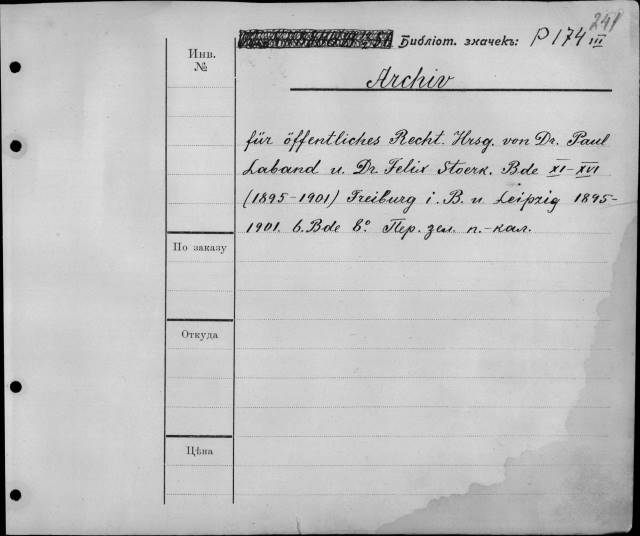 241
Библіот. значекъ: P 174 III
Инв.
№
Archiv
für öffentliches Recht. Hrsg. von Dr. Paul
Laband u. Dr Felix Stoerk. Bde XI-XVI
(1895-1901) Freiburg i. B. u. Leipzig 1895-
1901. 6. Bde 8º Пер. зел. п.-кал.
По заказу
Откуда
Цѣна